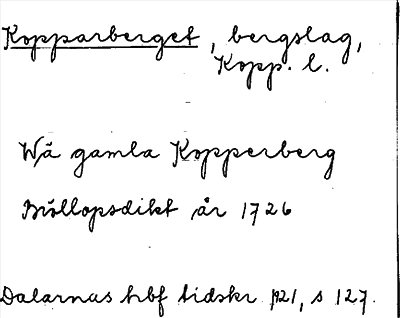 Kopparberget, bergslag,
Kopp. l.
Wä gamla Kopperberg
Bröllopsdikt år 1726
Dalarnas hbf tidskr 1921, s 127.